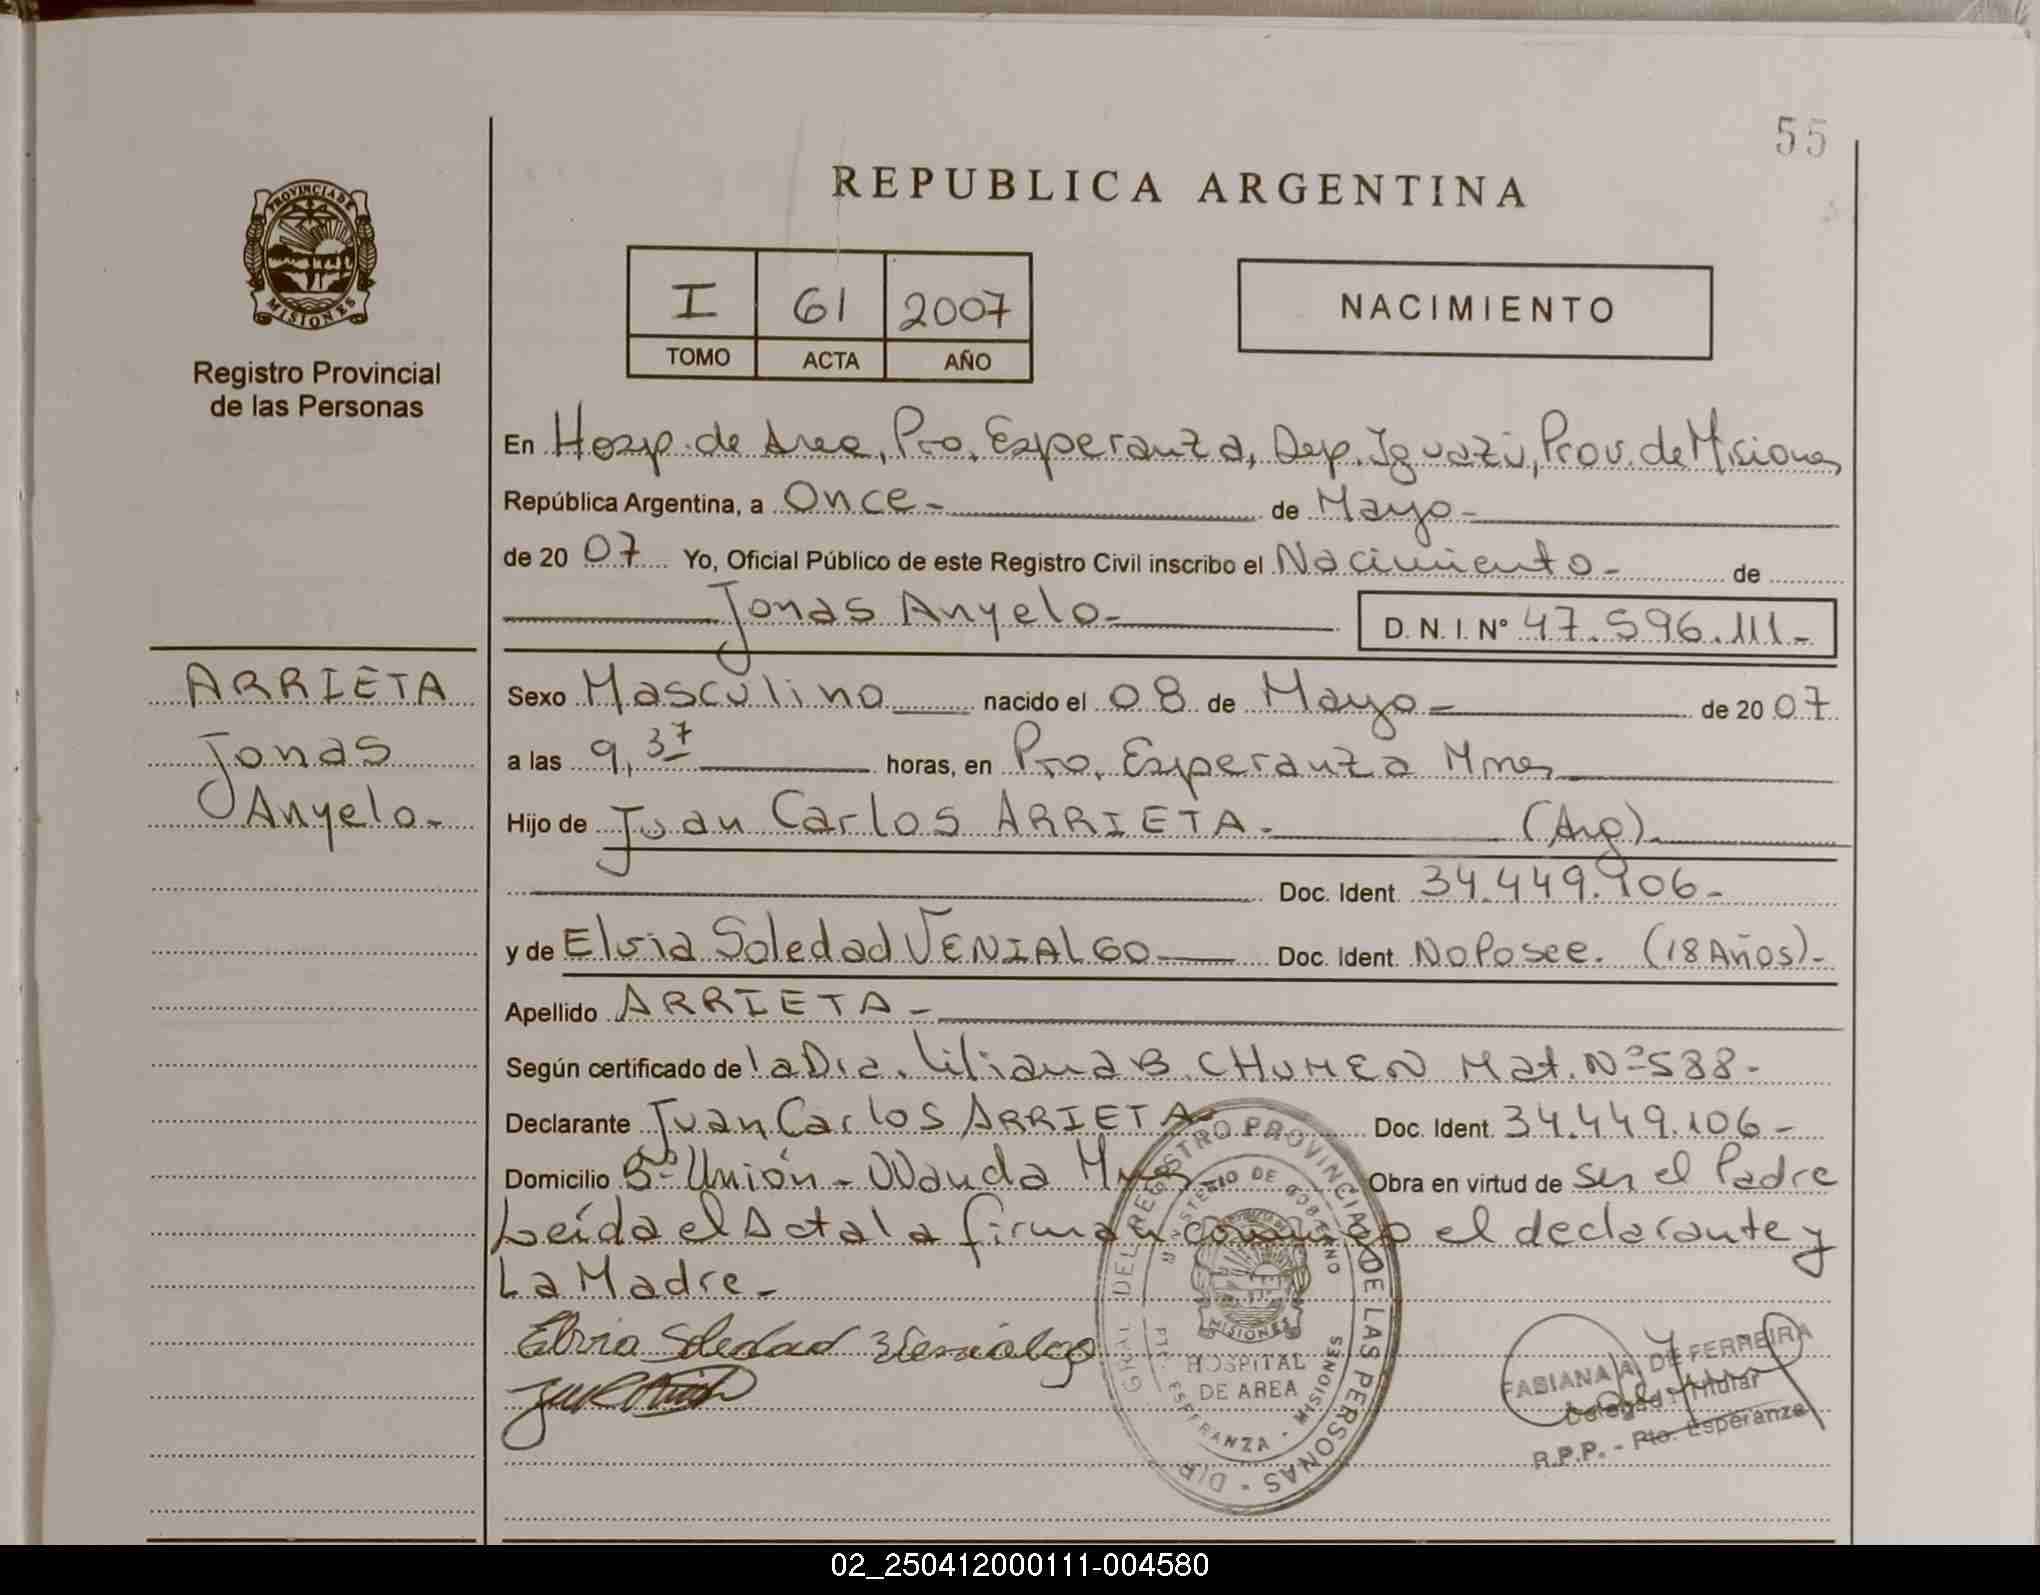 55
PROVINCIA DE
MISIONES
Registro Provincial
de las Personas
REPUBLICA ARGENTINA
I 61 2007
TOMO ACTA AÑO
NACIMIENTO
En Hosp. de Area, Pto. Esperanza, Dep. Iguazú, Prov. de Misiones
República Argentina, a Once - de Mayo -
de 20 07 Yo, Oficial Público de este Registro Civil inscribo el Nacimiento - de
Jonas Anyelo - D. N. I. N° 47.596.111.-
ARRIETA
Jonas
Anyelo.-
Sexo Masculino nacido el 08 de Mayo - de 20 07
a las 9,37 horas, en Pto. Esperanza Mnes
Hijo de Juan Carlos ARRIETA. (Arg).
Doc. Ident. 34.449.106-
y de Elvia Soledad VENIALGO Doc. Ident. No Posee. (18 Años)-
Apellido ARRIETA -
Según certificado de la Dra. Liliana B. CHUMEN Mat. Nº 588-
Declarante Juan Carlos ARRIETA Doc. Ident. 34.449.106-
Domicilio Bº Unión - Wanda Mnes Obra en virtud de ser el Padre
Leída el Acta la firman conmigo el declarante y
La Madre -
Elvia Soledad Venialgo
DIR. GRAL. DEL REGISTRO PROVINCIAL DE LAS PERSONAS -
MINISTERIO DE GOBIERNO
MISIONES
HOSPITAL
DE AREA
PTO. ESPERANZA - MISIONES
FABIANA A. DE FERREIRA
Delegada Titular
R.P.P. - Pto. Esperanza
02_250412000111-004580